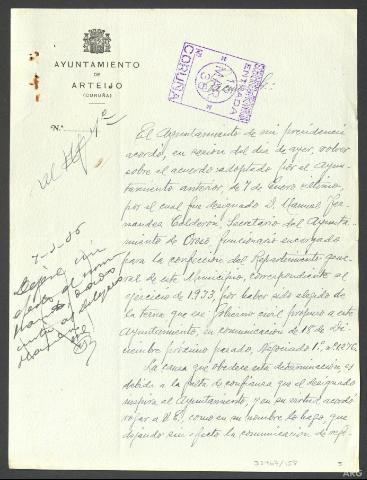 AYUNTAMIENTO
DE
ARTEIJO
(CORUÑA)
Nº
ENTRADA
MAR
CORUÑA
Excmo. Sr.:
El Ayuntamiento de mi presidencia
acordó, en sesión del día de ayer, volver
sobre el acuerdo adoptado por el Ayun-
tamiento anterior, de 7 de Enero último,
por el cual fué designado D. Manuel Fer-
nandez Calderón, Secretario del Ayunta-
miento de Oroso, funcionario encargado
para la confección del Repartimiento gene-
ral de este Municipio, correspondiente al
ejercicio de 1933, por haber sido elegido de
la terna que ese Gobierno civil propuso a este
Ayuntamiento, en comunicación de 18 de Di-
ciembre próximo pasado, Negociado 1º nº
La causa que obedece esta determinación es
debida a la falta de confianza que el designado
inspira al Ayuntamiento, y en su virtud acordó
rogar a V.E., como en su nombre lo hago, que
dejando sin efecto la comunicación de refe-
Dejese sin
efecto el nom
32964/158
5
ARG